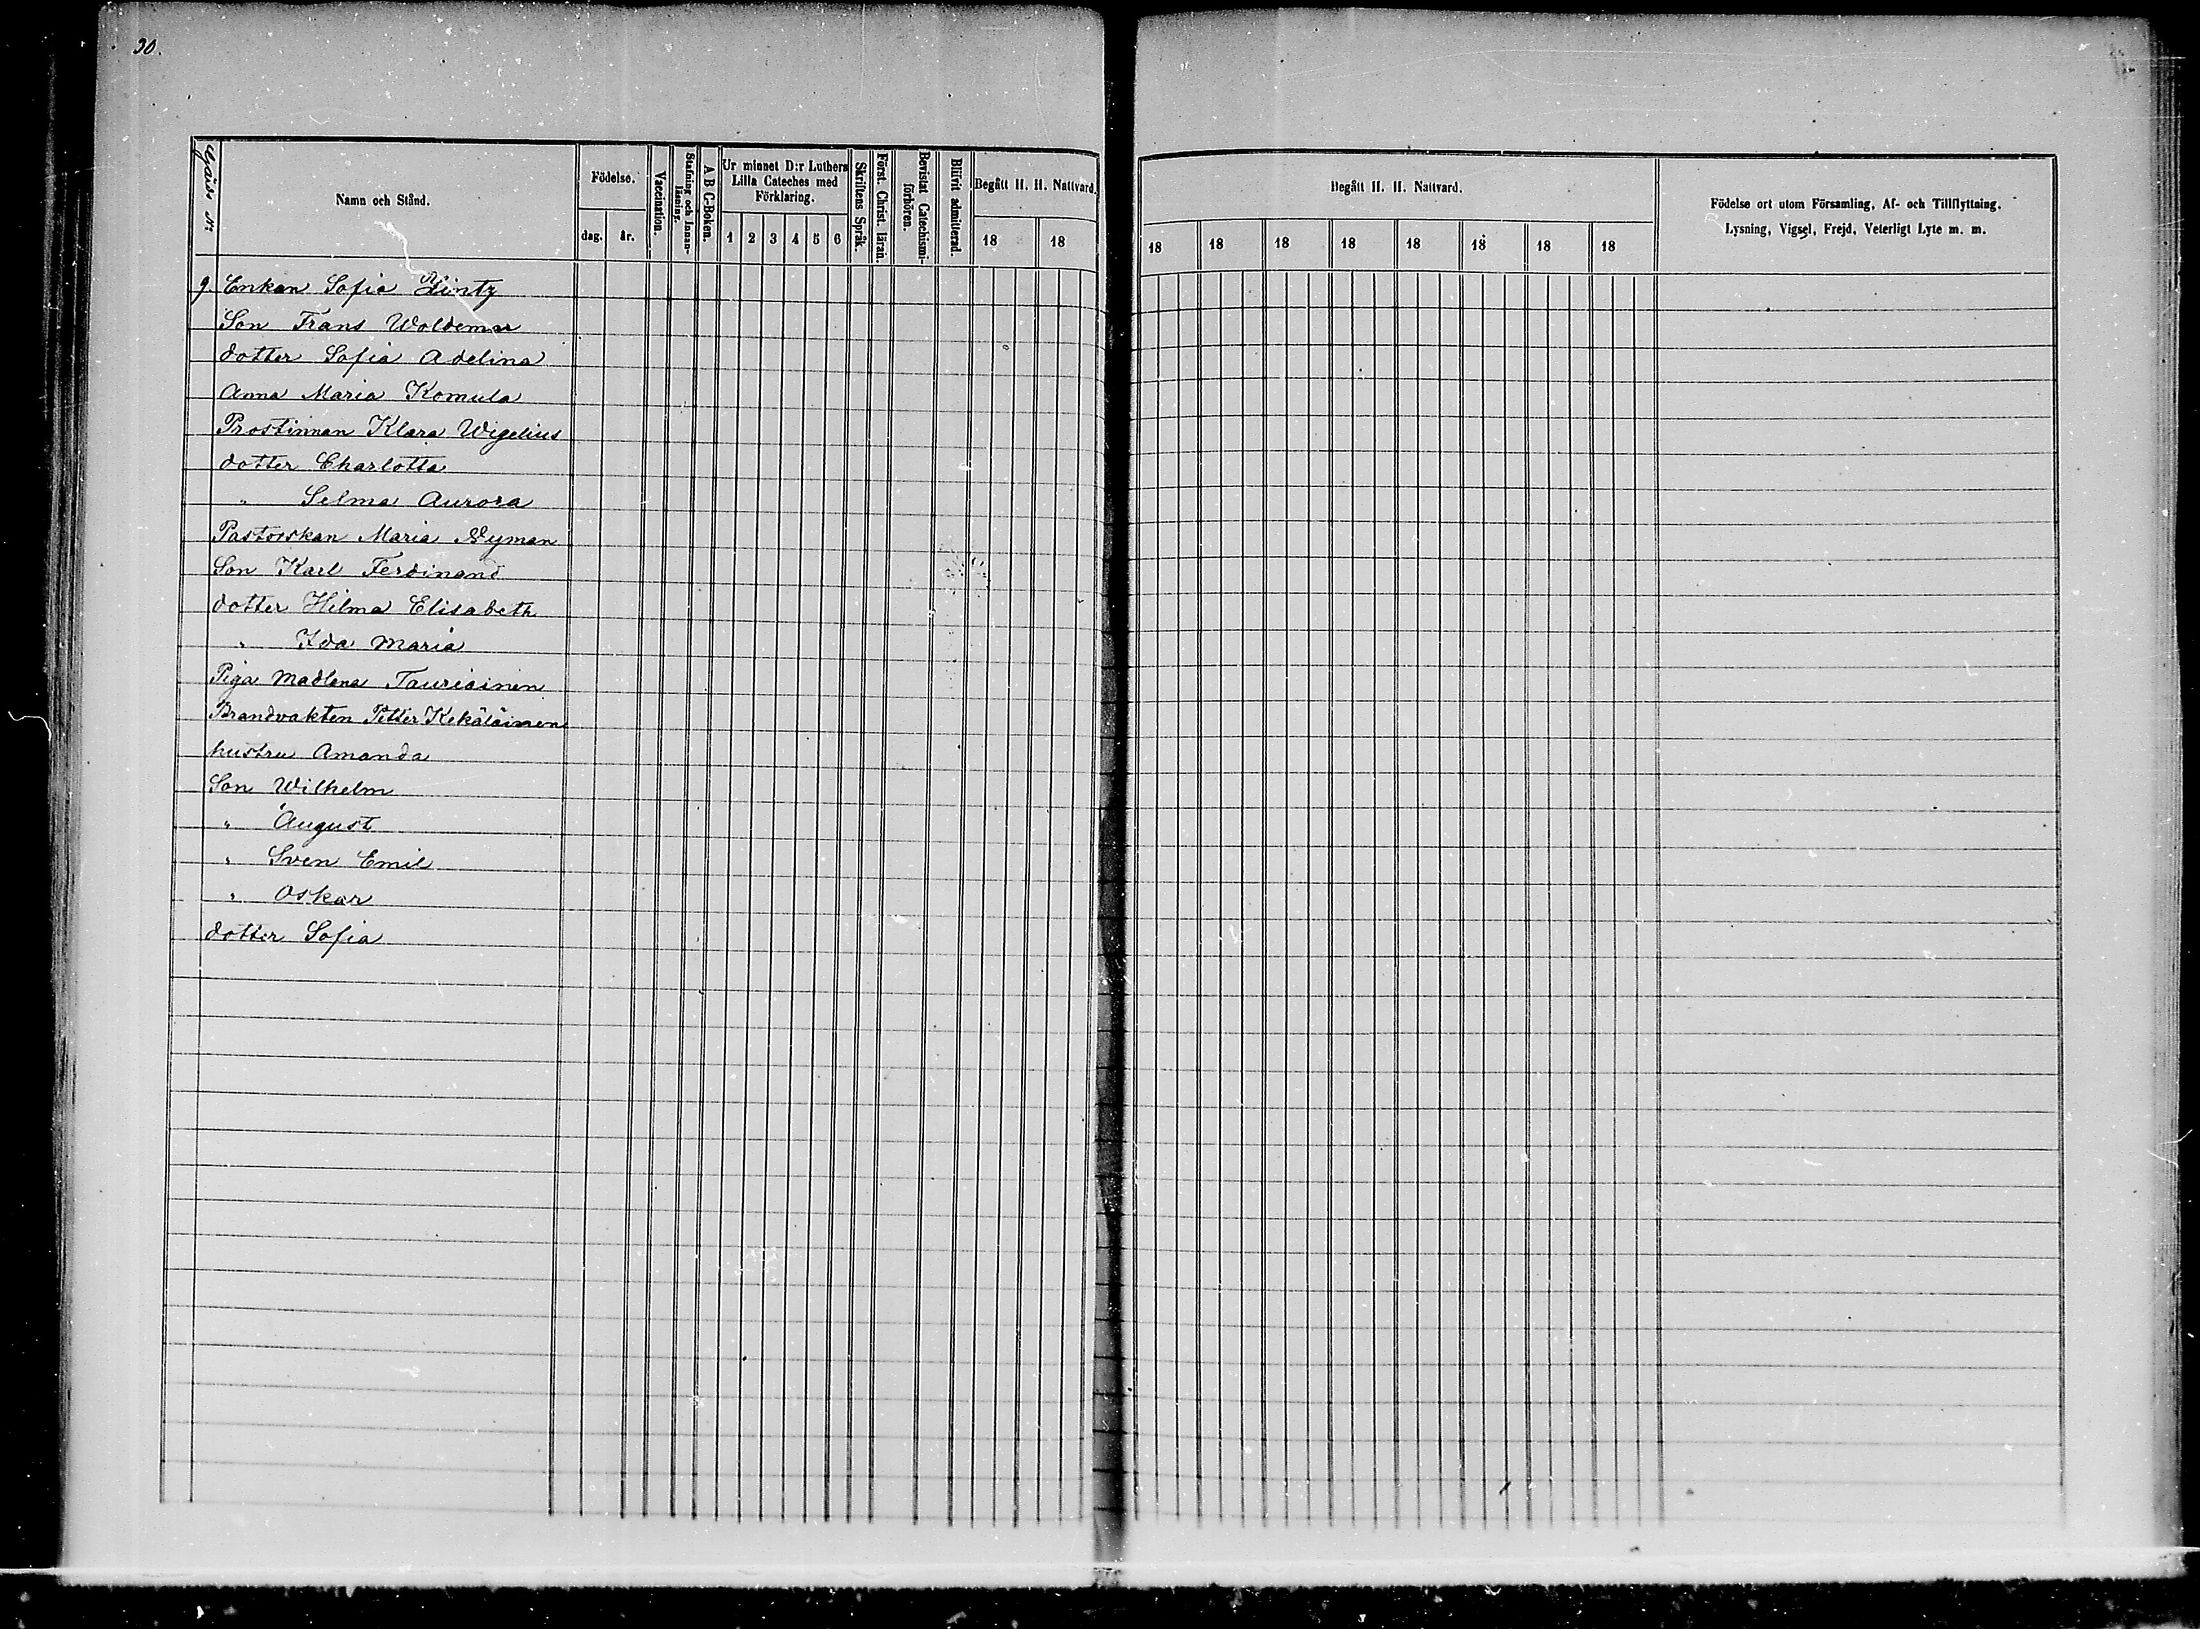 30.
Gårds Nr
Namn och Stånd.
Födelse.
dag.
år.
Vaccination.
Stafning och Innan-
läsning.
A B C-Boken.
Ur minnet D:r Luthers
Lilla Cateches med
Förklaring.
1 2 3 4 5 6
Skriftens Språk.
Först. Christ. läran.
Bevistat Catechismi-
förhören.
Blifvit admitterad.
Begått H. H. Nattvard.
18 18
Begått H. H. Nattvard.
18 18 18 18 18 18 18 18
Födelse ort utom Församling, Af- och Tillflyttning,
Lysning, Vigsel, Frejd, Veterligt Lyte m. m.
9. Enkan Sofia Lintz
Son Frans Woldemar
dotter Sofia Adelina
Anna Maria Komula
Prostinnan Klara Wigelius
dotter Charlotta
" Selma Aurora
Pastorskan Maria Nyman
Son Karl Ferdinand
dotter Hilma Elisabeth
" Ida Maria
Piga Madlena Tauriainen
Brandvakten Petter Kekäläinen
hustru Amanda
Son Wilhelm
" August
" Sven Emil
" Oskar
dotter Sofia